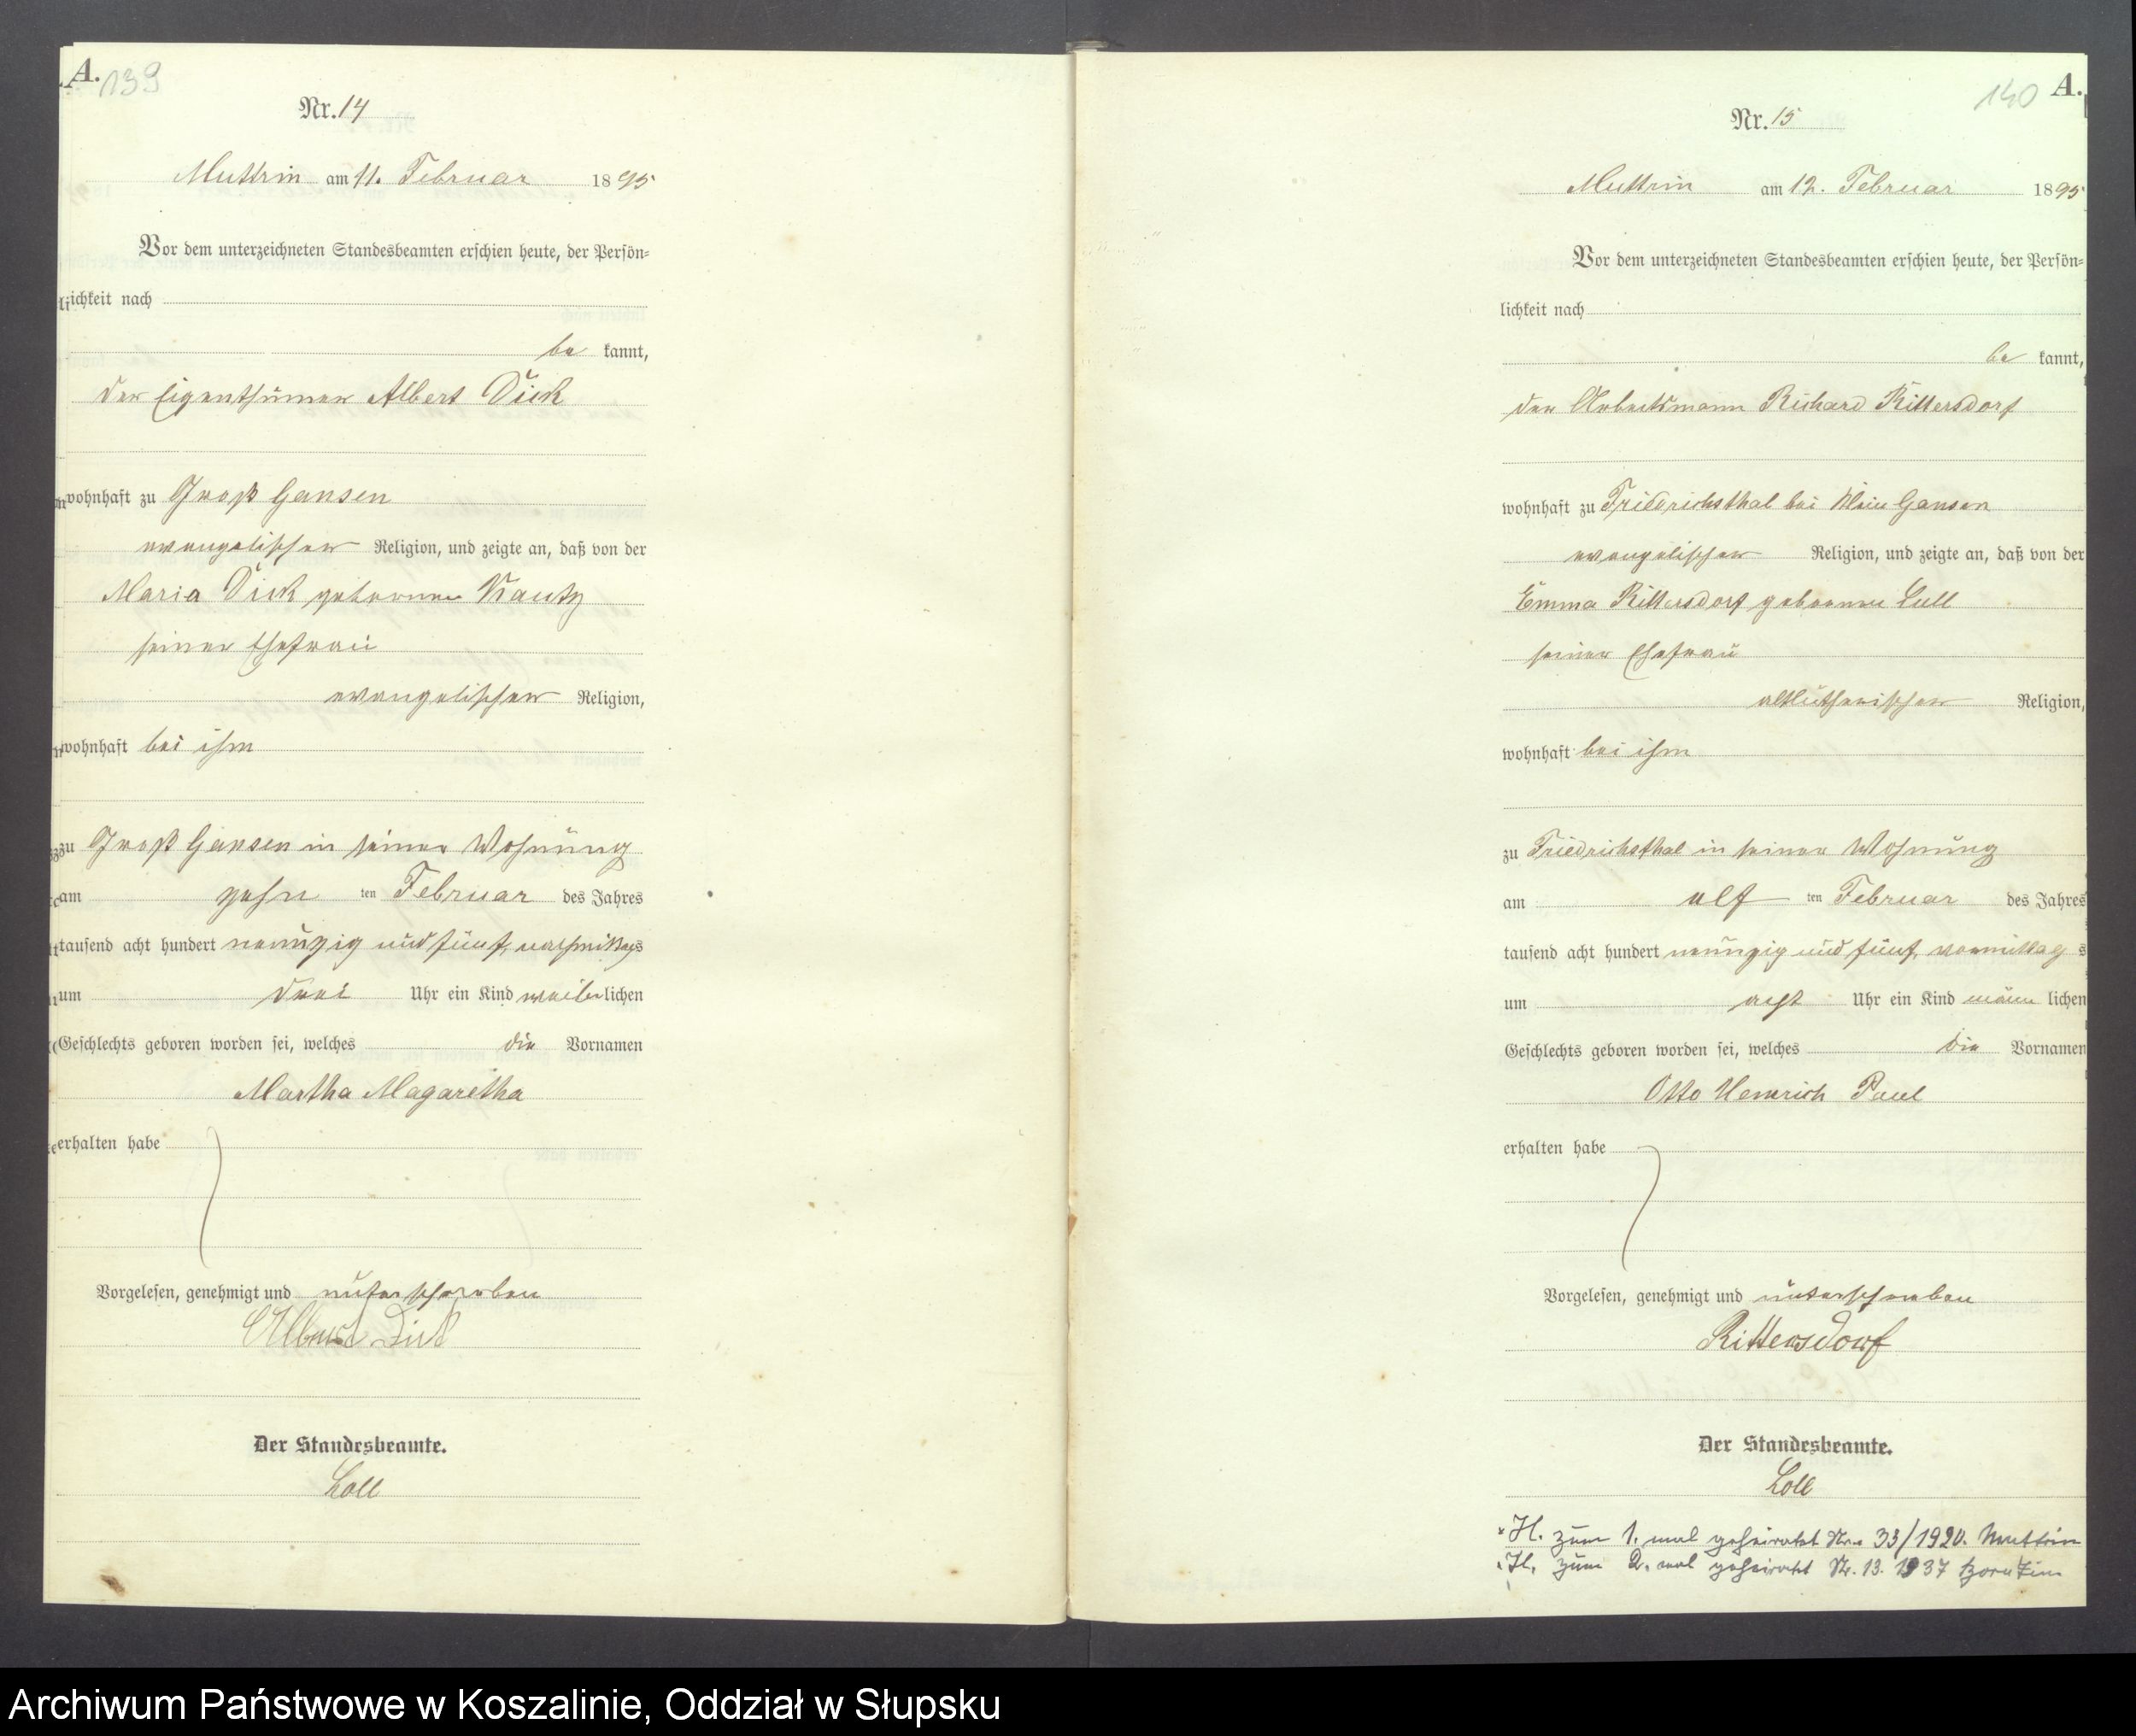 A.
139
Nr. 14
Muttrin am 11. Februar 1895
Vor dem unterzeichneten Standesbeamten erschien heute, der Persön=
lichkeit nach
be kannt,
der Eigenthümer Albert Dick
wohnhaft zu Groß Gansen
evangelischer Religion, und zeigte an, daß von der
Maria Dick geborenen Kautz
seiner Ehefrau
evangelischer Religion,
wohnhaft bei ihm
zu Groß Gansen in seiner Wohnung
am zehn ten Februar des Jahres
tausend acht hundert neunzig und fünf, nachmittags
um drei Uhr ein Kind weiblichen
Geschlechts geboren worden sei, welches die Vornamen
Martha Magaretha
erhalten habe
Vorgelesen, genehmigt und unterschrieben
Albert Dick
Der Standesbeamte.
Loll
140
A.
Nr. 15
Muttrin am 12. Februar 1895
Vor dem unterzeichneten Standesbeamten erschien heute, der Persön=
lichkeit nach
be kannt,
der Arbeitsmann Richard Rittersdorf
wohnhaft zu Friedrichsthal bei Klein Gansen
evangelischer Religion, und zeigte an, daß von der
Emma Rittersdorf geborenen Lull
seiner Ehefrau
altlutherischer Religion,
wohnhaft bei ihm
zu Friedrichsthal in seiner Wohnung
am elf ten Februar des Jahres
tausend acht hundert neunzig und fünf, vormittag s
um acht Uhr ein Kind männ lichen
Geschlechts geboren worden sei, welches die Vornamen
Otto Heinrich Paul
erhalten habe
Vorgelesen, genehmigt und unterschrieben
Rittersdorf
Der Standesbeamte.
Loll
H. zum 1. mal geheiratet Nr. 33/1920. Muttrin
H. zum 2. mal geheiratet Nr. 13. 1937
Archiwum Państwowe w Koszalinie, Oddział w Słupsku